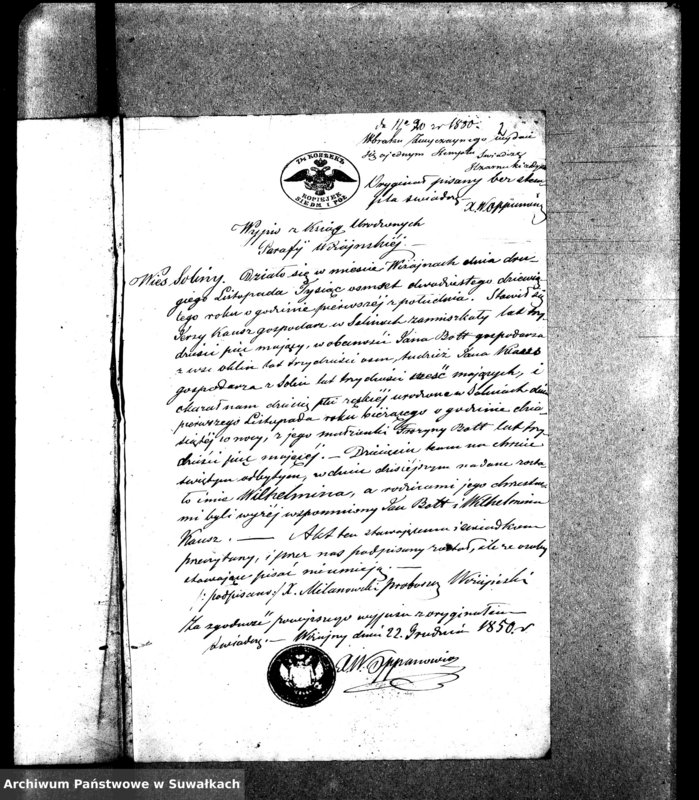 do 11/2 20 r 1850.
W braku tutejszego wydan
pisany bez stem
pla świadczę
X. W. Oppanowicz
7½ КОПѢЕКЪ
KOPIEJEK
SIEDM I PÓŁ
Wypis z Ksiąg Urodzonych
Parafij Wiżajnskiéj.
Wieś Soliny. Działo się w mieście Wiżajnach dnia dru
giego Listopada Tysiąc osmset dwudziestego dziewią
tego roku o godzinie pierwszéj z południa. Stawił się
Jerzy Kausz gospodarz w Solinach zamieszkały lat trzy
dzieści pięć mający, w obecności Jana Bott gospodarza
z wsi lat trzydzieści osm, tudzież Jana
gospodarza z Solin lat trzydzieści sześć mających, i
okazał nam dziecię płci żeńskiéj urodzone w Solinach dnia
pierwszego Listopada roku bieżącego o godzinie dzie
siątéj w nocy, z jego małżonki Bott lat trzy
dzieści pięć mającéj. — Dziecięciu temu na chrzcie
świętym odbytym, w dniu dzisiejszym nadane zosta
ło imie Wilhelmina, a rodzicami jego chrzestne
mi byli wyżéj wspomniony Jan Bott i Wilhelmina
Kausz. — Akt ten stawającemu i świadkom
przeczytany, i przez nas podpisany został, ile że osoby
stawające pisać nieumieją. —
/: podpisano :/ X. Milanowski proboszcz Wiżajnski
Za zgodność powyższego wypisu z oryginałem
świadczę. — Wiżajny dnia 22. Grudnia 1850. r
X. W. Oppanowicz
Archiwum Państwowe w Suwałkach